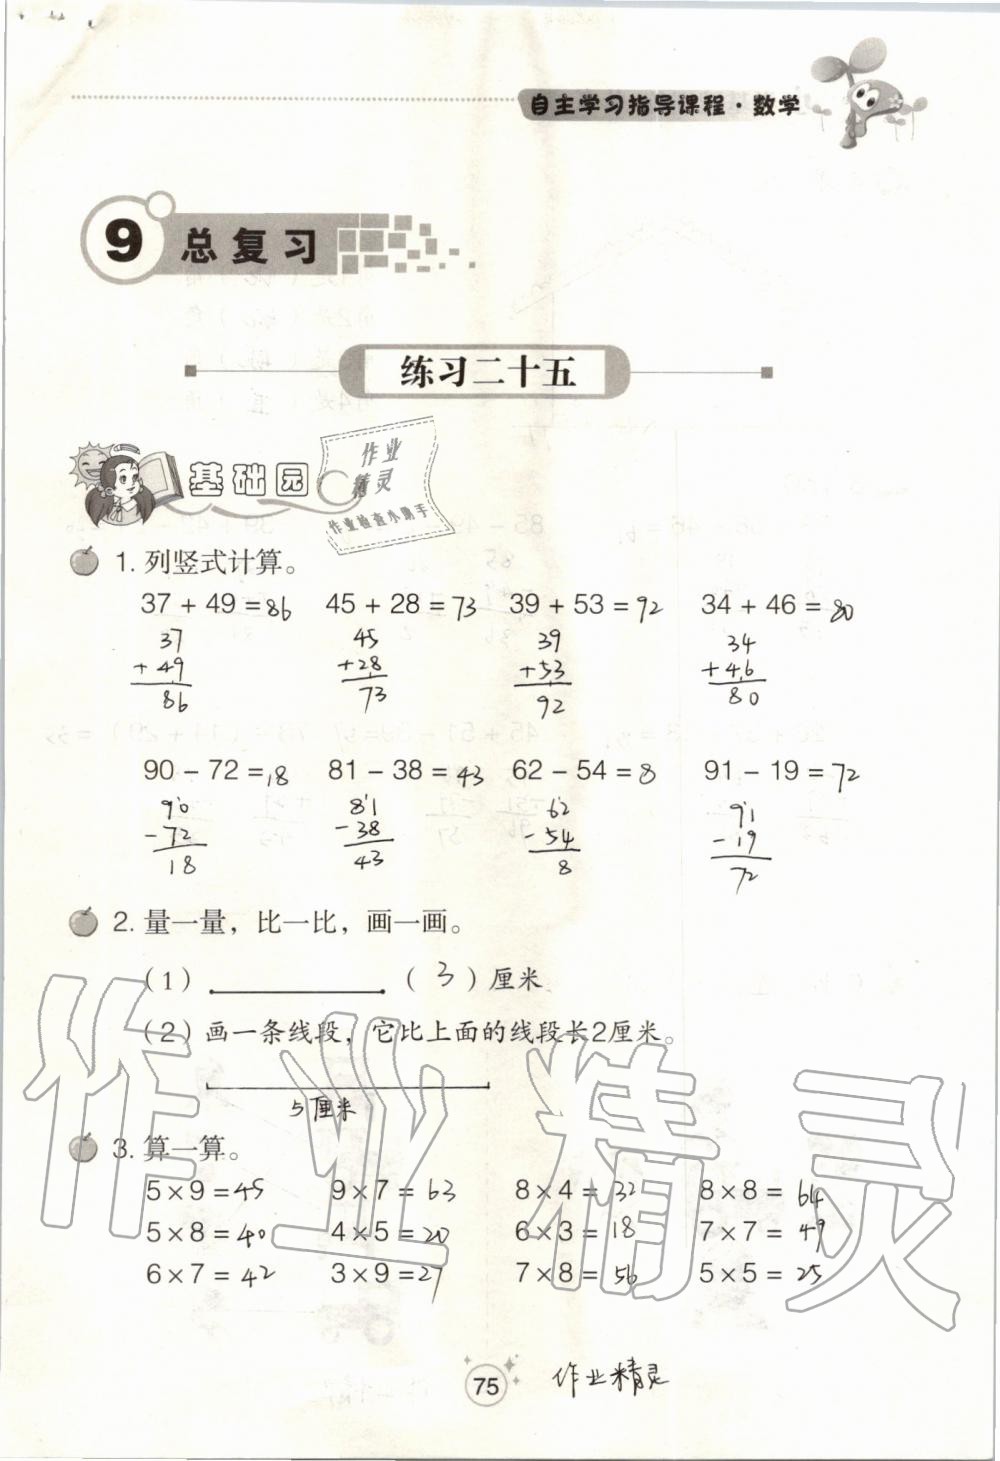 自主学习指导课程·数学
9 总复习
练习二十五
基础园
作业
精灵
作业检查小助手
1. 列竖式计算。
37 + 49 = 86 45 + 28 = 73 39 + 53 = 92 34 + 46 = 80
37 45 39 34
+ 49 + 28 + 53 + 46
86 73 92 80
90 - 72 = 18 81 - 38 = 43 62 - 54 = 8 91 - 19 = 72
90 81 62 91
- 72 - 38 - 54 - 19
18 43 8 72
2. 量一量，比一比，画一画。
（1） （ 3 ）厘米
（2）画一条线段，它比上面的线段长2厘米。
5厘米
3. 算一算。
5×9=45 9×7=63 8×4=32 8×8=64
5×8=40 4×5=20 6×3=18 7×7=49
6×7=42 3×9=27 7×8=56 5×5=25
作业精灵
75 作业精灵